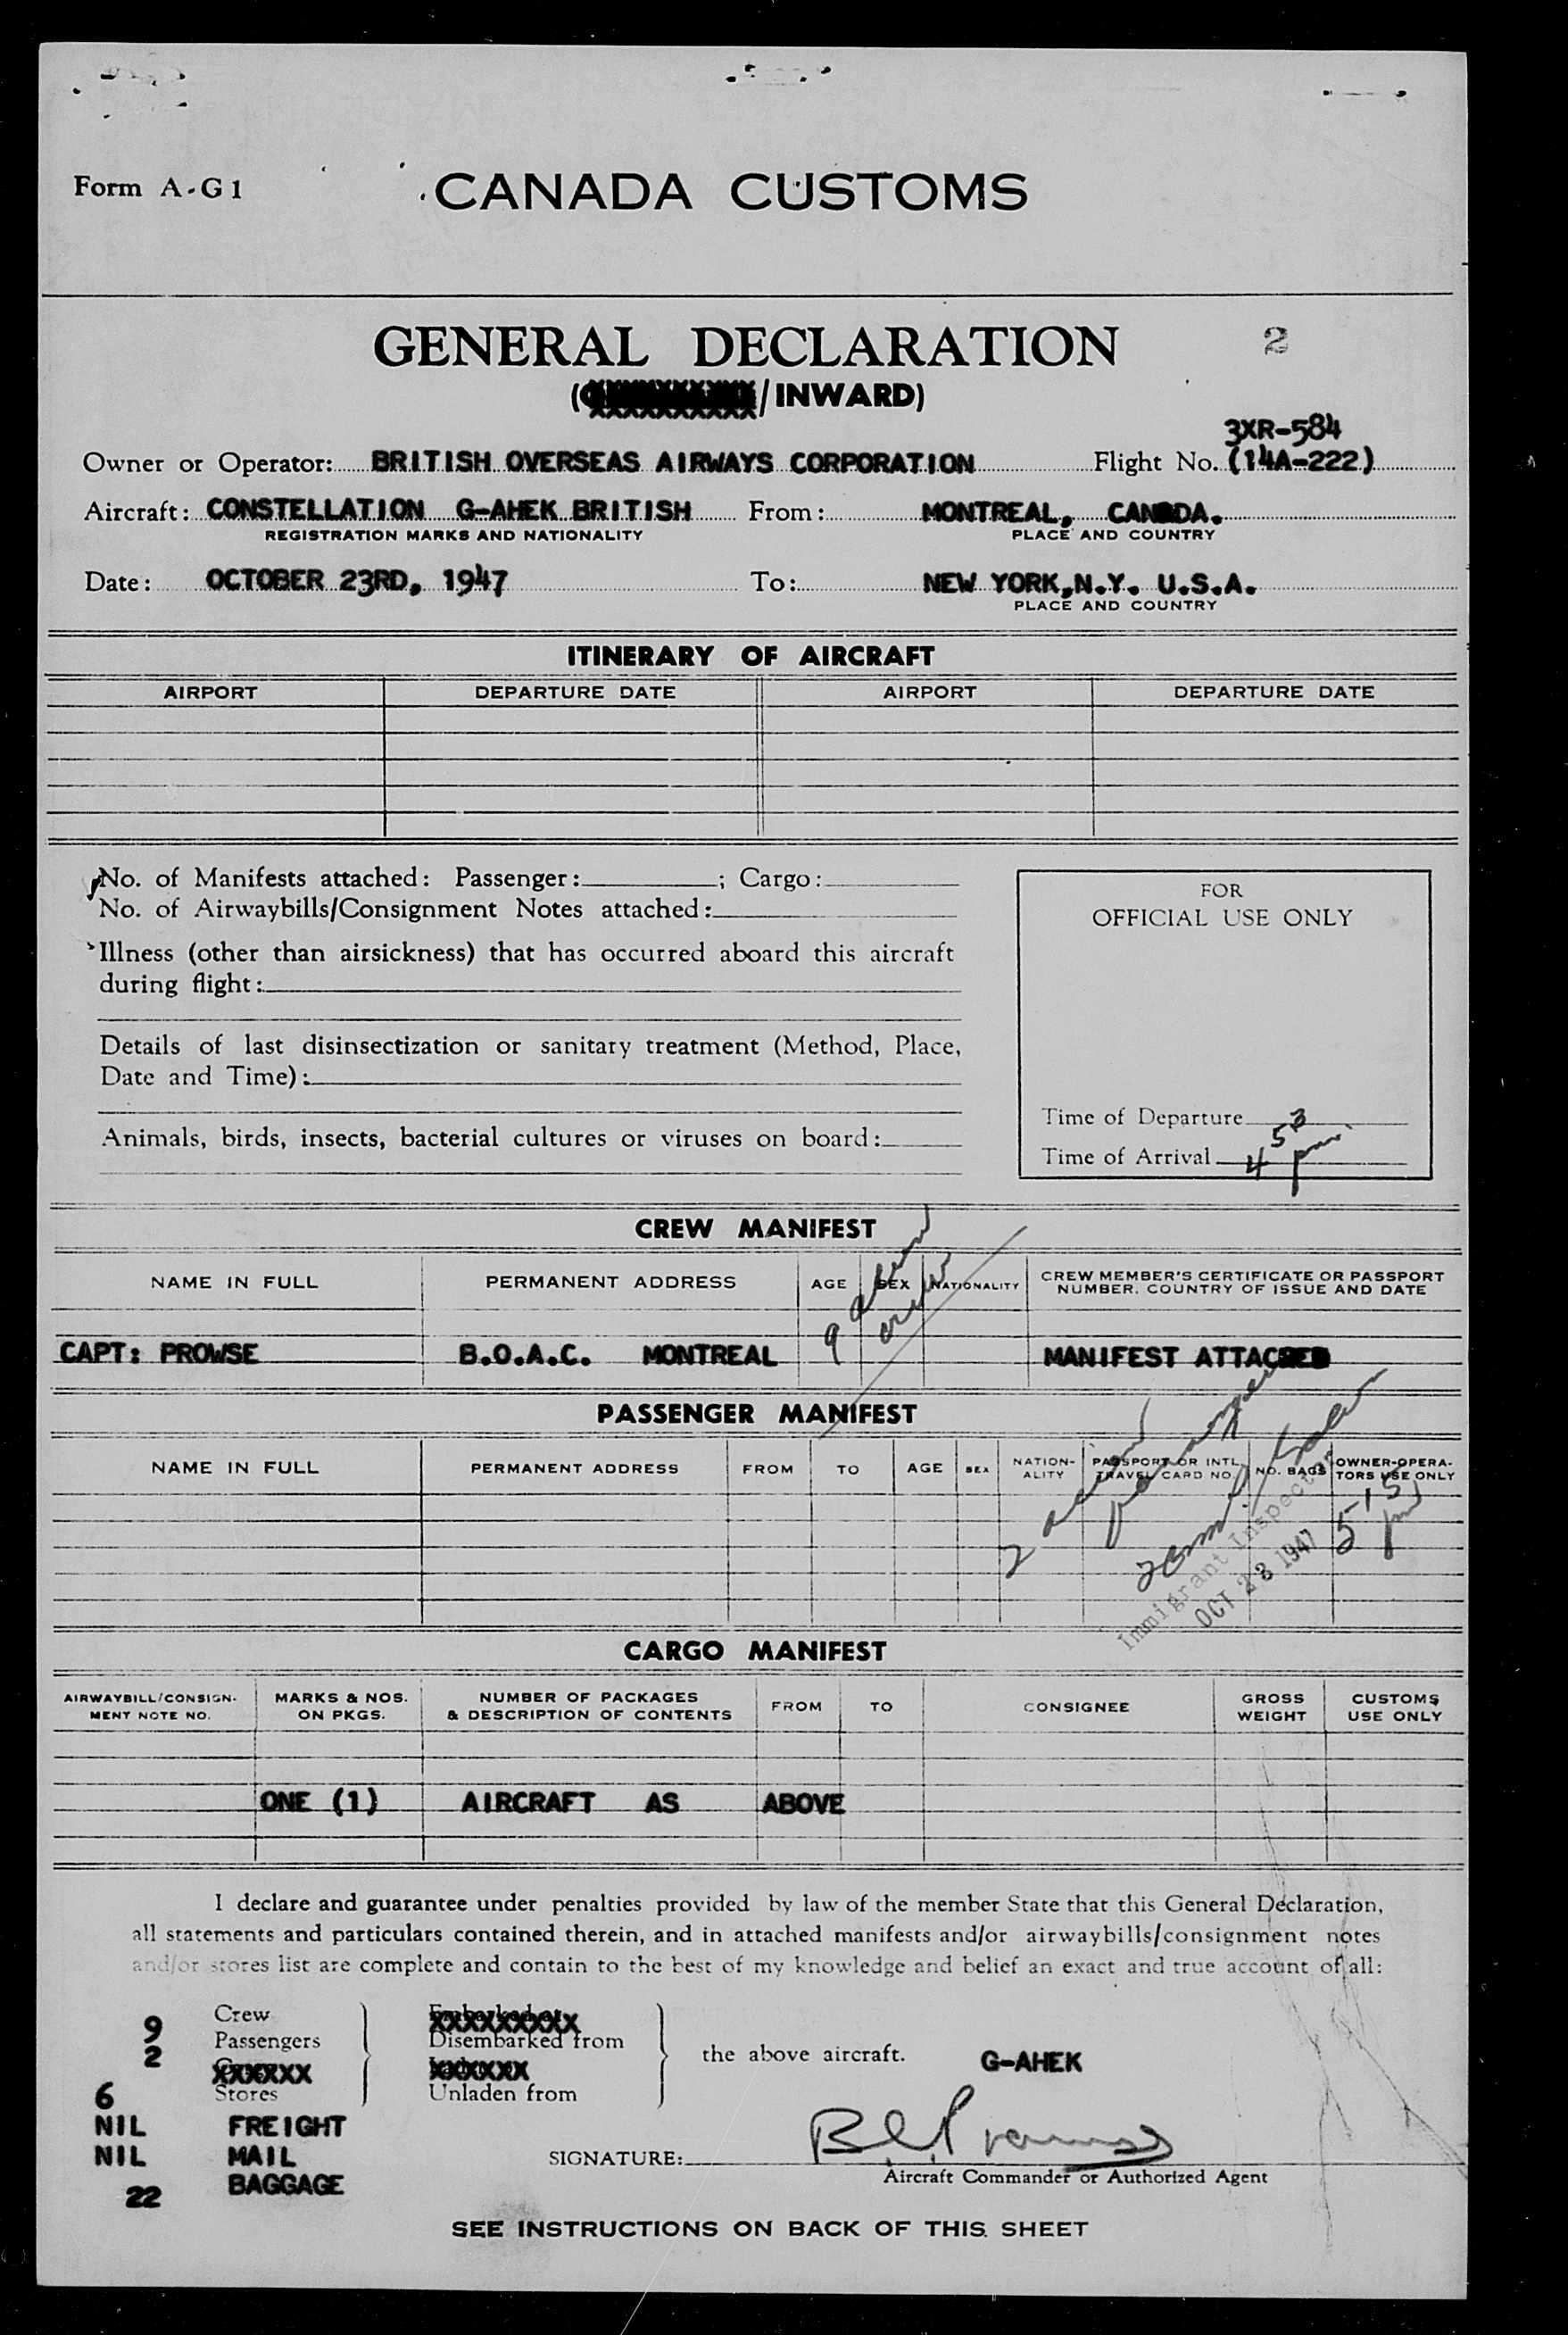 Form A-G1
CANADA CUSTOMS
GENERAL DECLARATION
2
(/INWARD)
3XR-584
Owner or Operator: BRITISH OVERSEAS AIRWAYS CORPORATION Flight No. (14A-222)
Aircraft: CONSTELLATION G-AHEK BRITISH From: MONTREAL, CANADA.
REGISTRATION MARKS AND NATIONALITY PLACE AND COUNTRY
Date: OCTOBER 23RD, 1947 To: NEW YORK,N.Y. U.S.A.
PLACE AND COUNTRY
ITINERARY OF AIRCRAFT
AIRPORT DEPARTURE DATE AIRPORT DEPARTURE DATE
No. of Manifests attached: Passenger: ; Cargo:
No. of Airwaybills/Consignment Notes attached:
Illness (other than airsickness) that has occurred aboard this aircraft
during flight:
Details of last disinsectization or sanitary treatment (Method, Place,
Date and Time):
Animals, birds, insects, bacterial cultures or viruses on board:
FOR
OFFICIAL USE ONLY
Time of Departure
Time of Arrival 4 53 pm
CREW MANIFEST
NAME IN FULL PERMANENT ADDRESS AGE SEX NATIONALITY CREW MEMBER'S CERTIFICATE OR PASSPORT
NUMBER, COUNTRY OF ISSUE AND DATE
9 alien
crew
CAPT: PROWSE B.O.A.C. MONTREAL MANIFEST ATTACHED
PASSENGER MANIFEST
NAME IN FULL PERMANENT ADDRESS FROM TO AGE SEX NATION-
ALITY PASSPORT OR INTL.
TRAVEL CARD NO. NO. BAGS OWNER-OPERA-
TORS USE ONLY
2 alien
passengers
515 pm
Immigrant Inspector
OCT 23 1947
CARGO MANIFEST
AIRWAYBILL/CONSIGN-
MENT NOTE NO. MARKS & NOS.
ON PKGS. NUMBER OF PACKAGES
& DESCRIPTION OF CONTENTS FROM TO CONSIGNEE GROSS
WEIGHT CUSTOMS
USE ONLY
ONE (1) AIRCRAFT AS ABOVE
I declare and guarantee under penalties provided by law of the member State that this General Declaration,
all statements and particulars contained therein, and in attached manifests and/or airwaybills/consignment notes
and/or stores list are complete and contain to the best of my knowledge and belief an exact and true account of all:
9 Crew
2 Passengers Disembarked from
XXXXXX XXXXXX the above aircraft. G-AHEK
6 Stores Unladen from
NIL FREIGHT
NIL MAIL
22 BAGGAGE
SIGNATURE:
Aircraft Commander or Authorized Agent
SEE INSTRUCTIONS ON BACK OF THIS SHEET